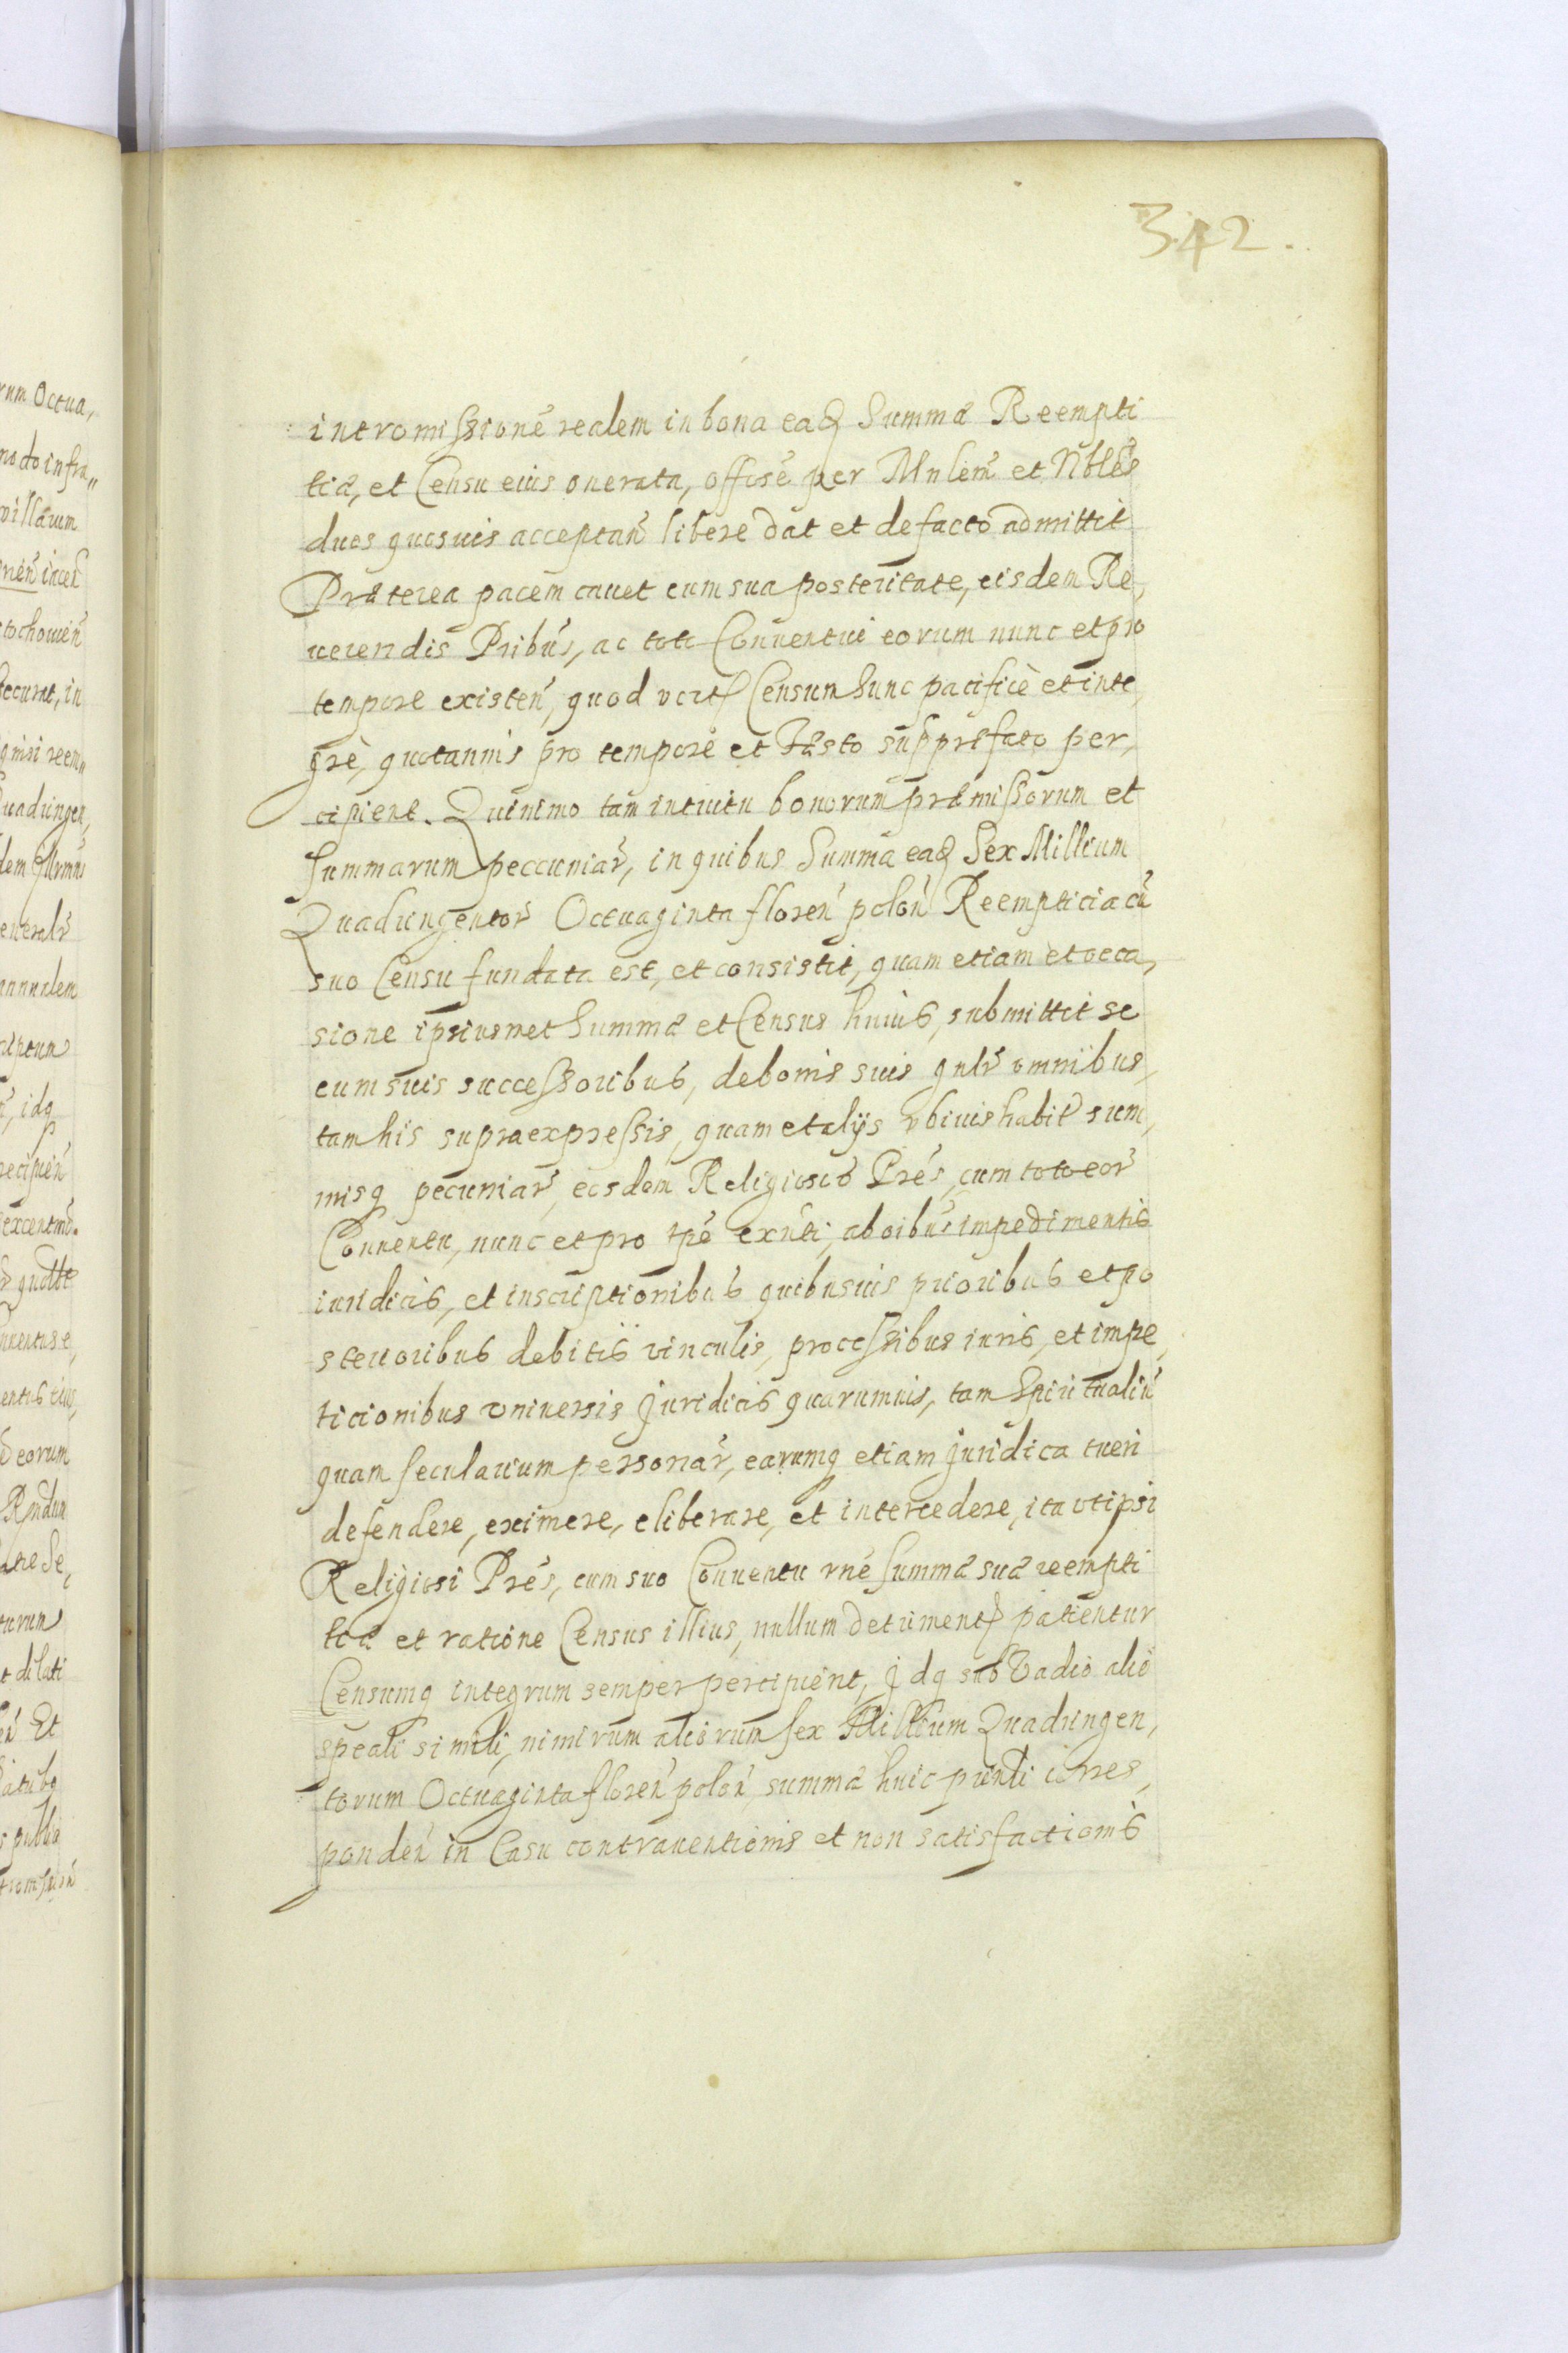 342.
intromissionē realem in bona eadē Summæ Reempti
tiæ, et Censu eius onerata, officsē per Mnlēm et Nblēs
duos quosuis acceptañ libere dat et de facto admittit
Præterea pacem cauet cum sua posteritate, eisdem Re,
uerendis Pribūs, ac toti Conuentui eorum nunc et pro
tempore existeñ, quod vert Censum hunc pacificè et inte,
grè, quotannis pro tempore et Fæsto supprefato per,
cipient. Quinimo tam intuitu bonorum præmissorum et
summarum peccuniar̃, in quibus Summa eadē Sex Millium
Quadringentor̃ Octuaginta floreñ poloñ Reempticia cū
suo Censu fundata est, et consistit, quam etiam et occa,
sione ipsiusmet Summæ et Census huius, submittit se
cum suis successoribus, de bonis suis gnlr̃ omnibus,
tam his supra expressis, quam et alijs vbiuis habit̃ sum,
misq pecuniar̃, eosdem Religiosos Prēs, cum toto eor̃
Conuentu, nunc et pro tp̄e exñti, ab oibūs impedimentis
iuridicis, et inscriptionibus quibusuis prioribus et po
sterioribus debitis vinculis, processibus iuris, et impe,
ticionibus vniuersis Juridicis quarumuis, tam Spiritualiū
quam secularium personar̃, earumq etiam juridica tueri
defendere, eximere, eliberare, et intercedere, ita vt ipsi
Religiosi Prēs, cum suo Conuentu rnē summæ suæ reempti
tiæ et ratione Census illius, nullum detriment patientur
Censumq integrum semper percipient, Jdq sub Vadio alio
speali simili, nimirum aliorum sex Millium Quadringen,
torum Octuaginta floreñ poloñ, summæ huic pñti corres,
pondeñ in Casu contrauentionis et non satisfactionis